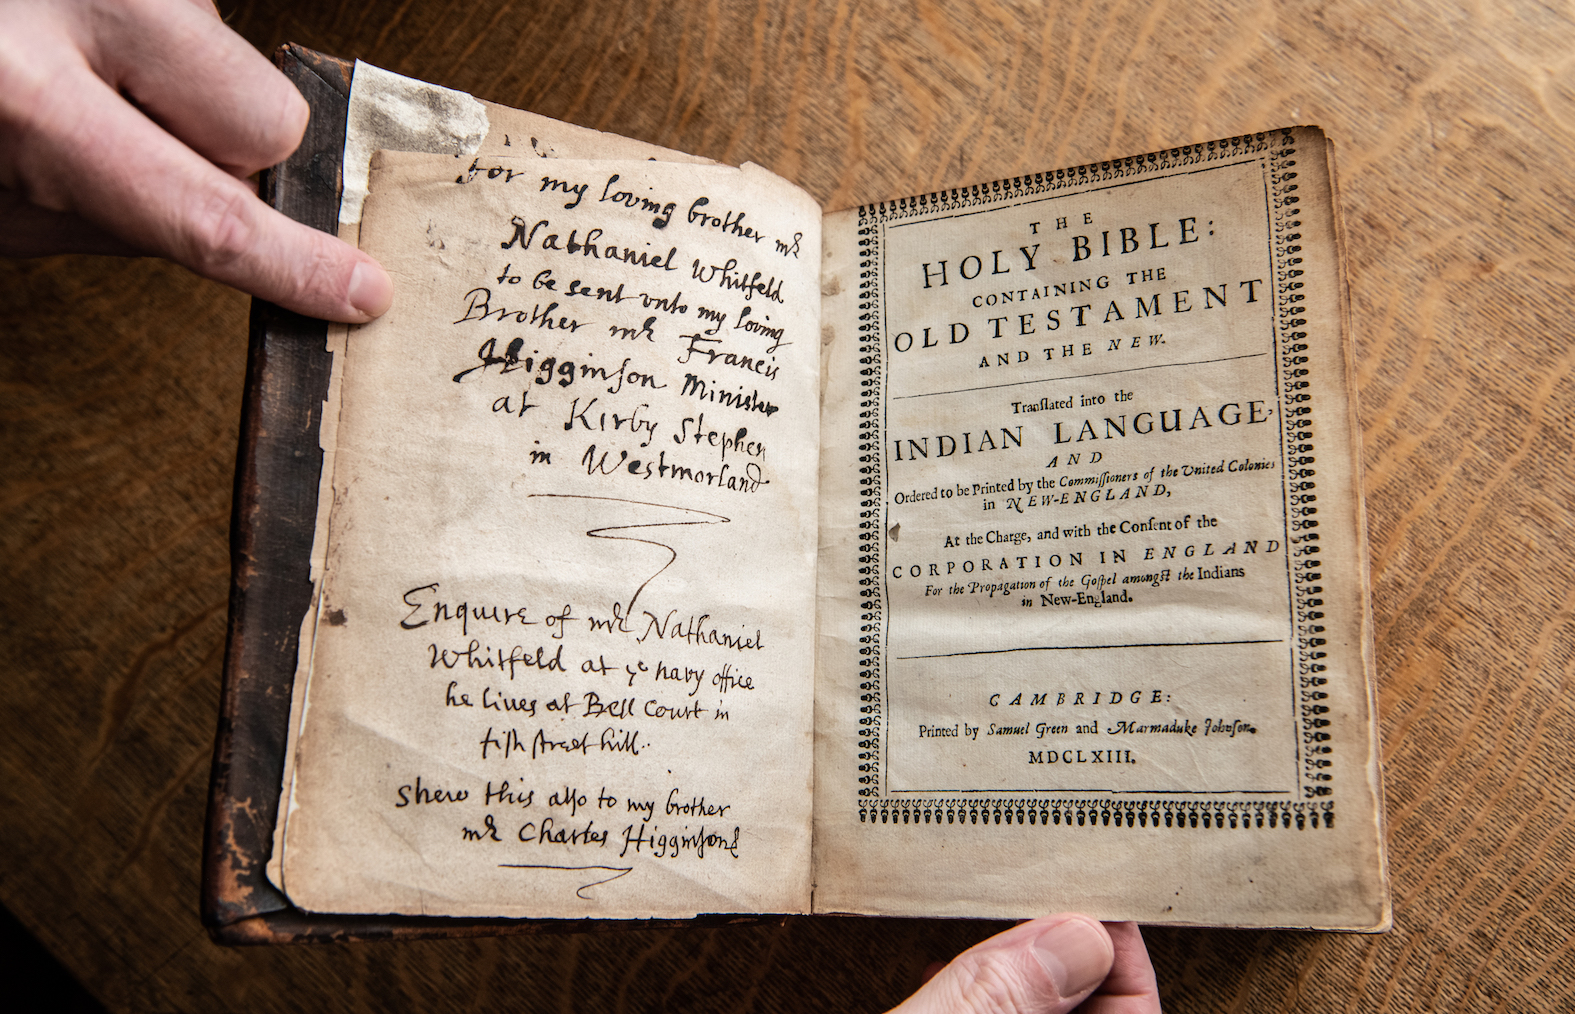 for my loving brother mr
Nathaniel Whitfeld
to be sent vnto my loving
Brother mr Francis
Higginſon Minister
at Kirby Stephen
in Westmorland
Enquire of mr Nathaniel
Whitfeld at ye navy office
he lives at Bell Court in
fiſh ſtreet hill.
shew this alſo to my brother
mr Charles Higginſon
THE
HOLY BIBLE:
CONTAINING THE
OLD TESTAMENT
AND THE NEW.
Tranſlated into the
INDIAN LANGUAGE,
AND
Ordered to be Printed by the Commiſſioners of the United Colonies
in NEW-ENGLAND,
At the Charge, and with the Conſent of the
CORPORATION IN ENGLAND
For the Propagation of the Goſpel amongſt the Indians
in New-England.
CAMBRIDGE:
Printed by Samuel Green and Marmaduke Johnſon.
MDCLXIII.